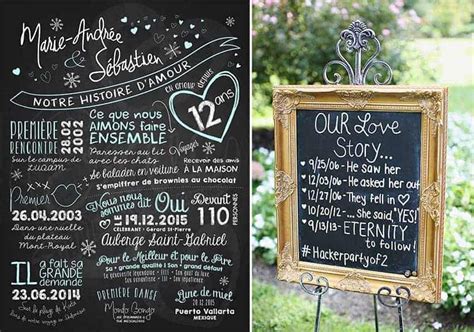 Marie-Andrée
&
Sébastien
NOTRE HISTOIRE D'AMOUR
en amour depuis
12 ans
PREMIÈRE
RENCONTRE
28.02
2002
Sur le campus de
Ce que nous
AIMONS faire
ENSEMBLE
Paresser au lit
avec les chats
Voyager
Recevoir des amis
À LA MAISON
Se balader en voiture
s'empiffrer de brownies au chocolat
Premier
26.04.2003
Dans une ruelle
du plateau
Mont-Royal
Nous nous
sommes dit
Oui
le 19.12.2015
CÉLÉBRANT - Gérard St-Pierre
Auberge Saint-Gabriel
Devant
110
PERSONNES
IL
a fait sa
GRANDE
demande
23.06.2014
PREMIÈRE DANSE
Mambo Bongo
Lune de miel
20.12.2015
Puerto Vallarta
MEXIQUE
OUR Love
Story...
9/25/06 - He saw her
12/03/06 - He asked her out
12/31/06 - They fell in love
10/20/12 - ... She said, "YES!"
9/13/13 - ETERNITY
to follow!
#HackerpartyOf2